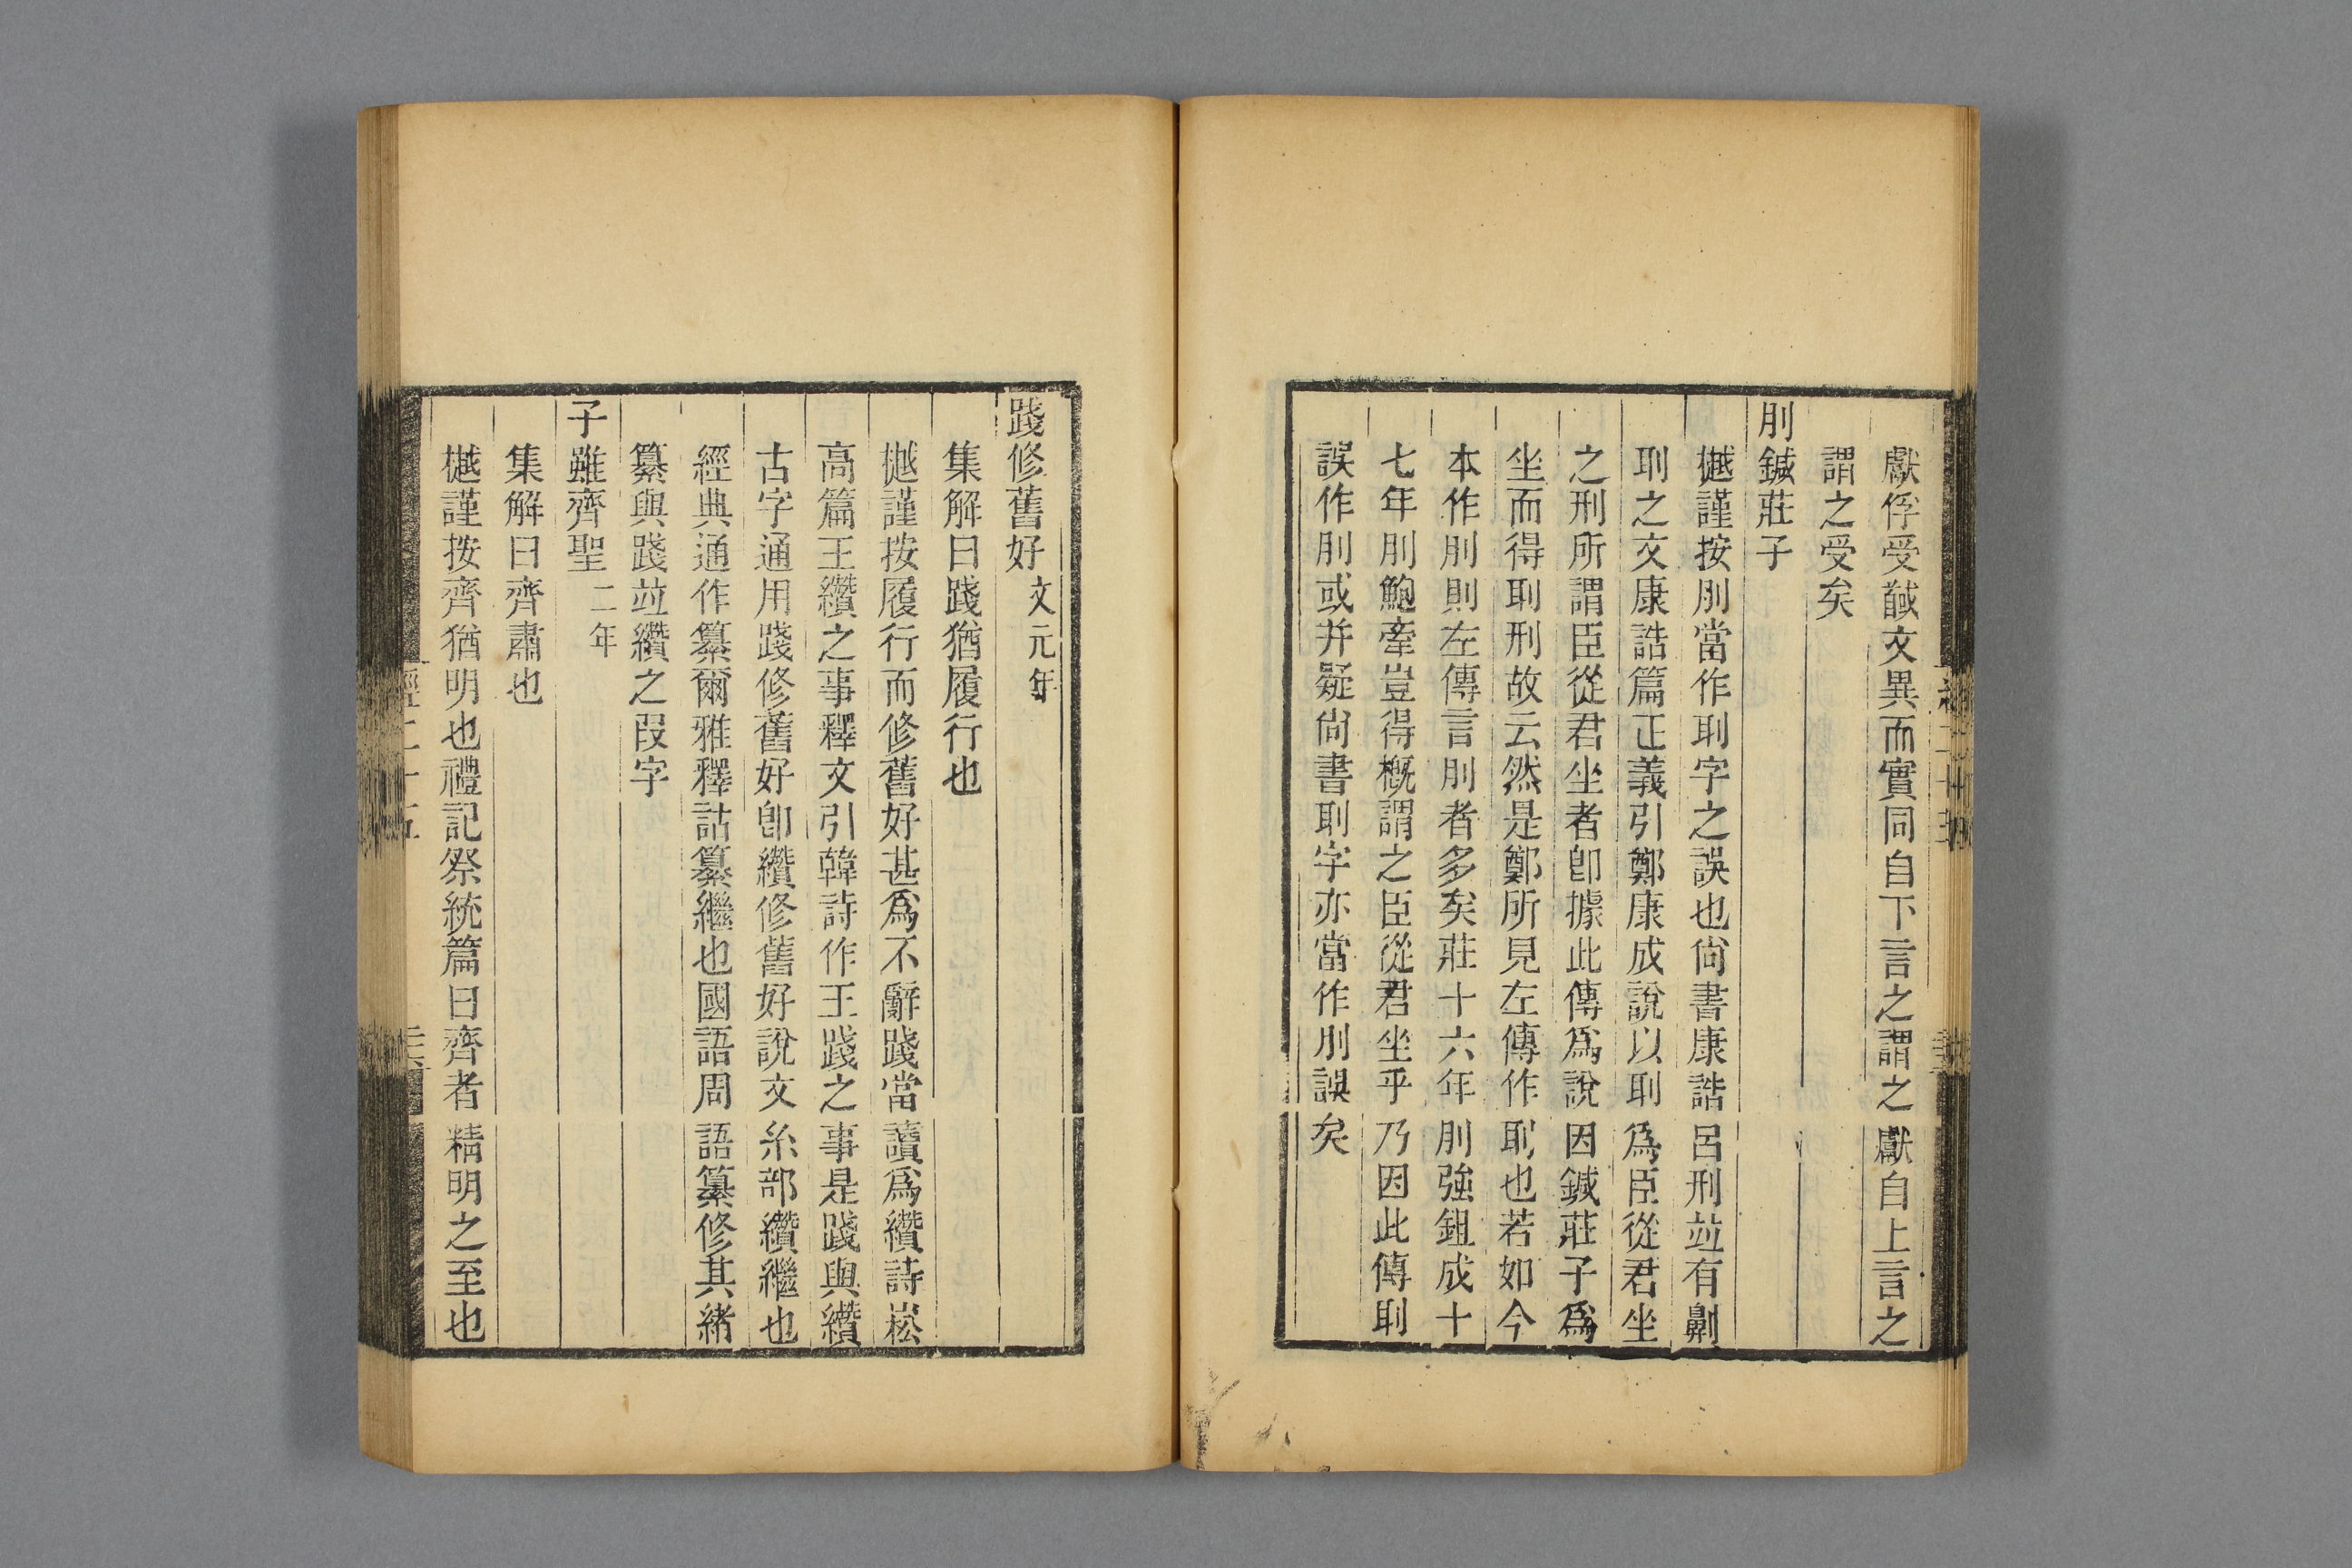 獻俘受馘文異而實同自下言之謂之獻自上言之
謂之受矣
刖鍼莊子
樾謹按刖當作刵字之誤也尙書康誥呂刑竝有劓
刵之文康誥篇正義引鄭康成說以刵爲臣從君坐
之刑所謂臣從君坐者卽據此傳爲說因鍼莊子爲
坐而得刵刑故云然是鄭所見左傳作刵也若如今
本作刖則左傳言刖者多矣莊十六年刖強鉏成十
七年刖鮑牽豈得槪謂之臣從君坐乎乃因此傳刵
誤作刖或并疑尙書刵字亦當作刖誤矣
踐修舊好文元年
集解曰踐猶履行也
樾謹按履行而修舊好甚爲不辭踐當讀爲纘詩崧
高篇王纘之事釋文引韓詩作王踐之事是踐與纘
古字通用踐修舊好卽纘修舊好說文糸部纘繼也
經典通作纂爾雅釋詁纂繼也國語周語纂修其緖
纂與踐竝纘之叚字
子雖齊聖二年
集解曰齊肅也
樾謹按齊猶明也禮記祭統篇曰齊者精明之至也